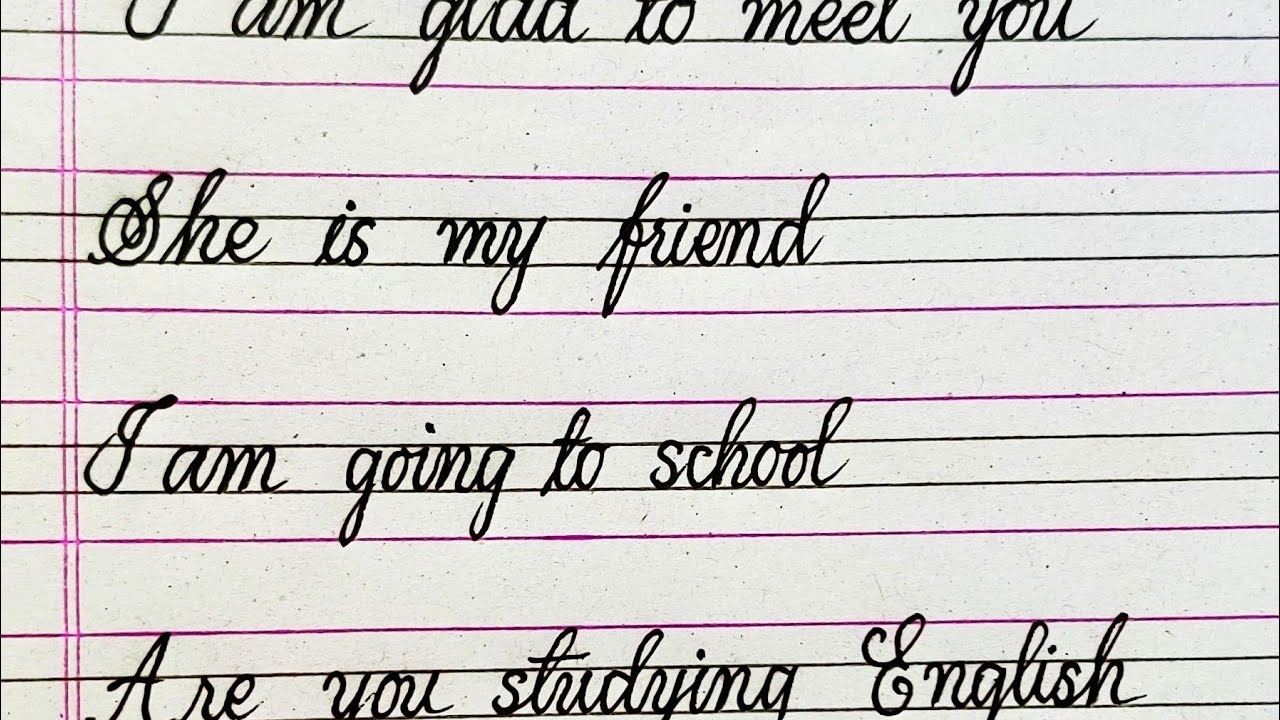 I am glad to meet you
She is my friend
I am going to school
Are you studying English